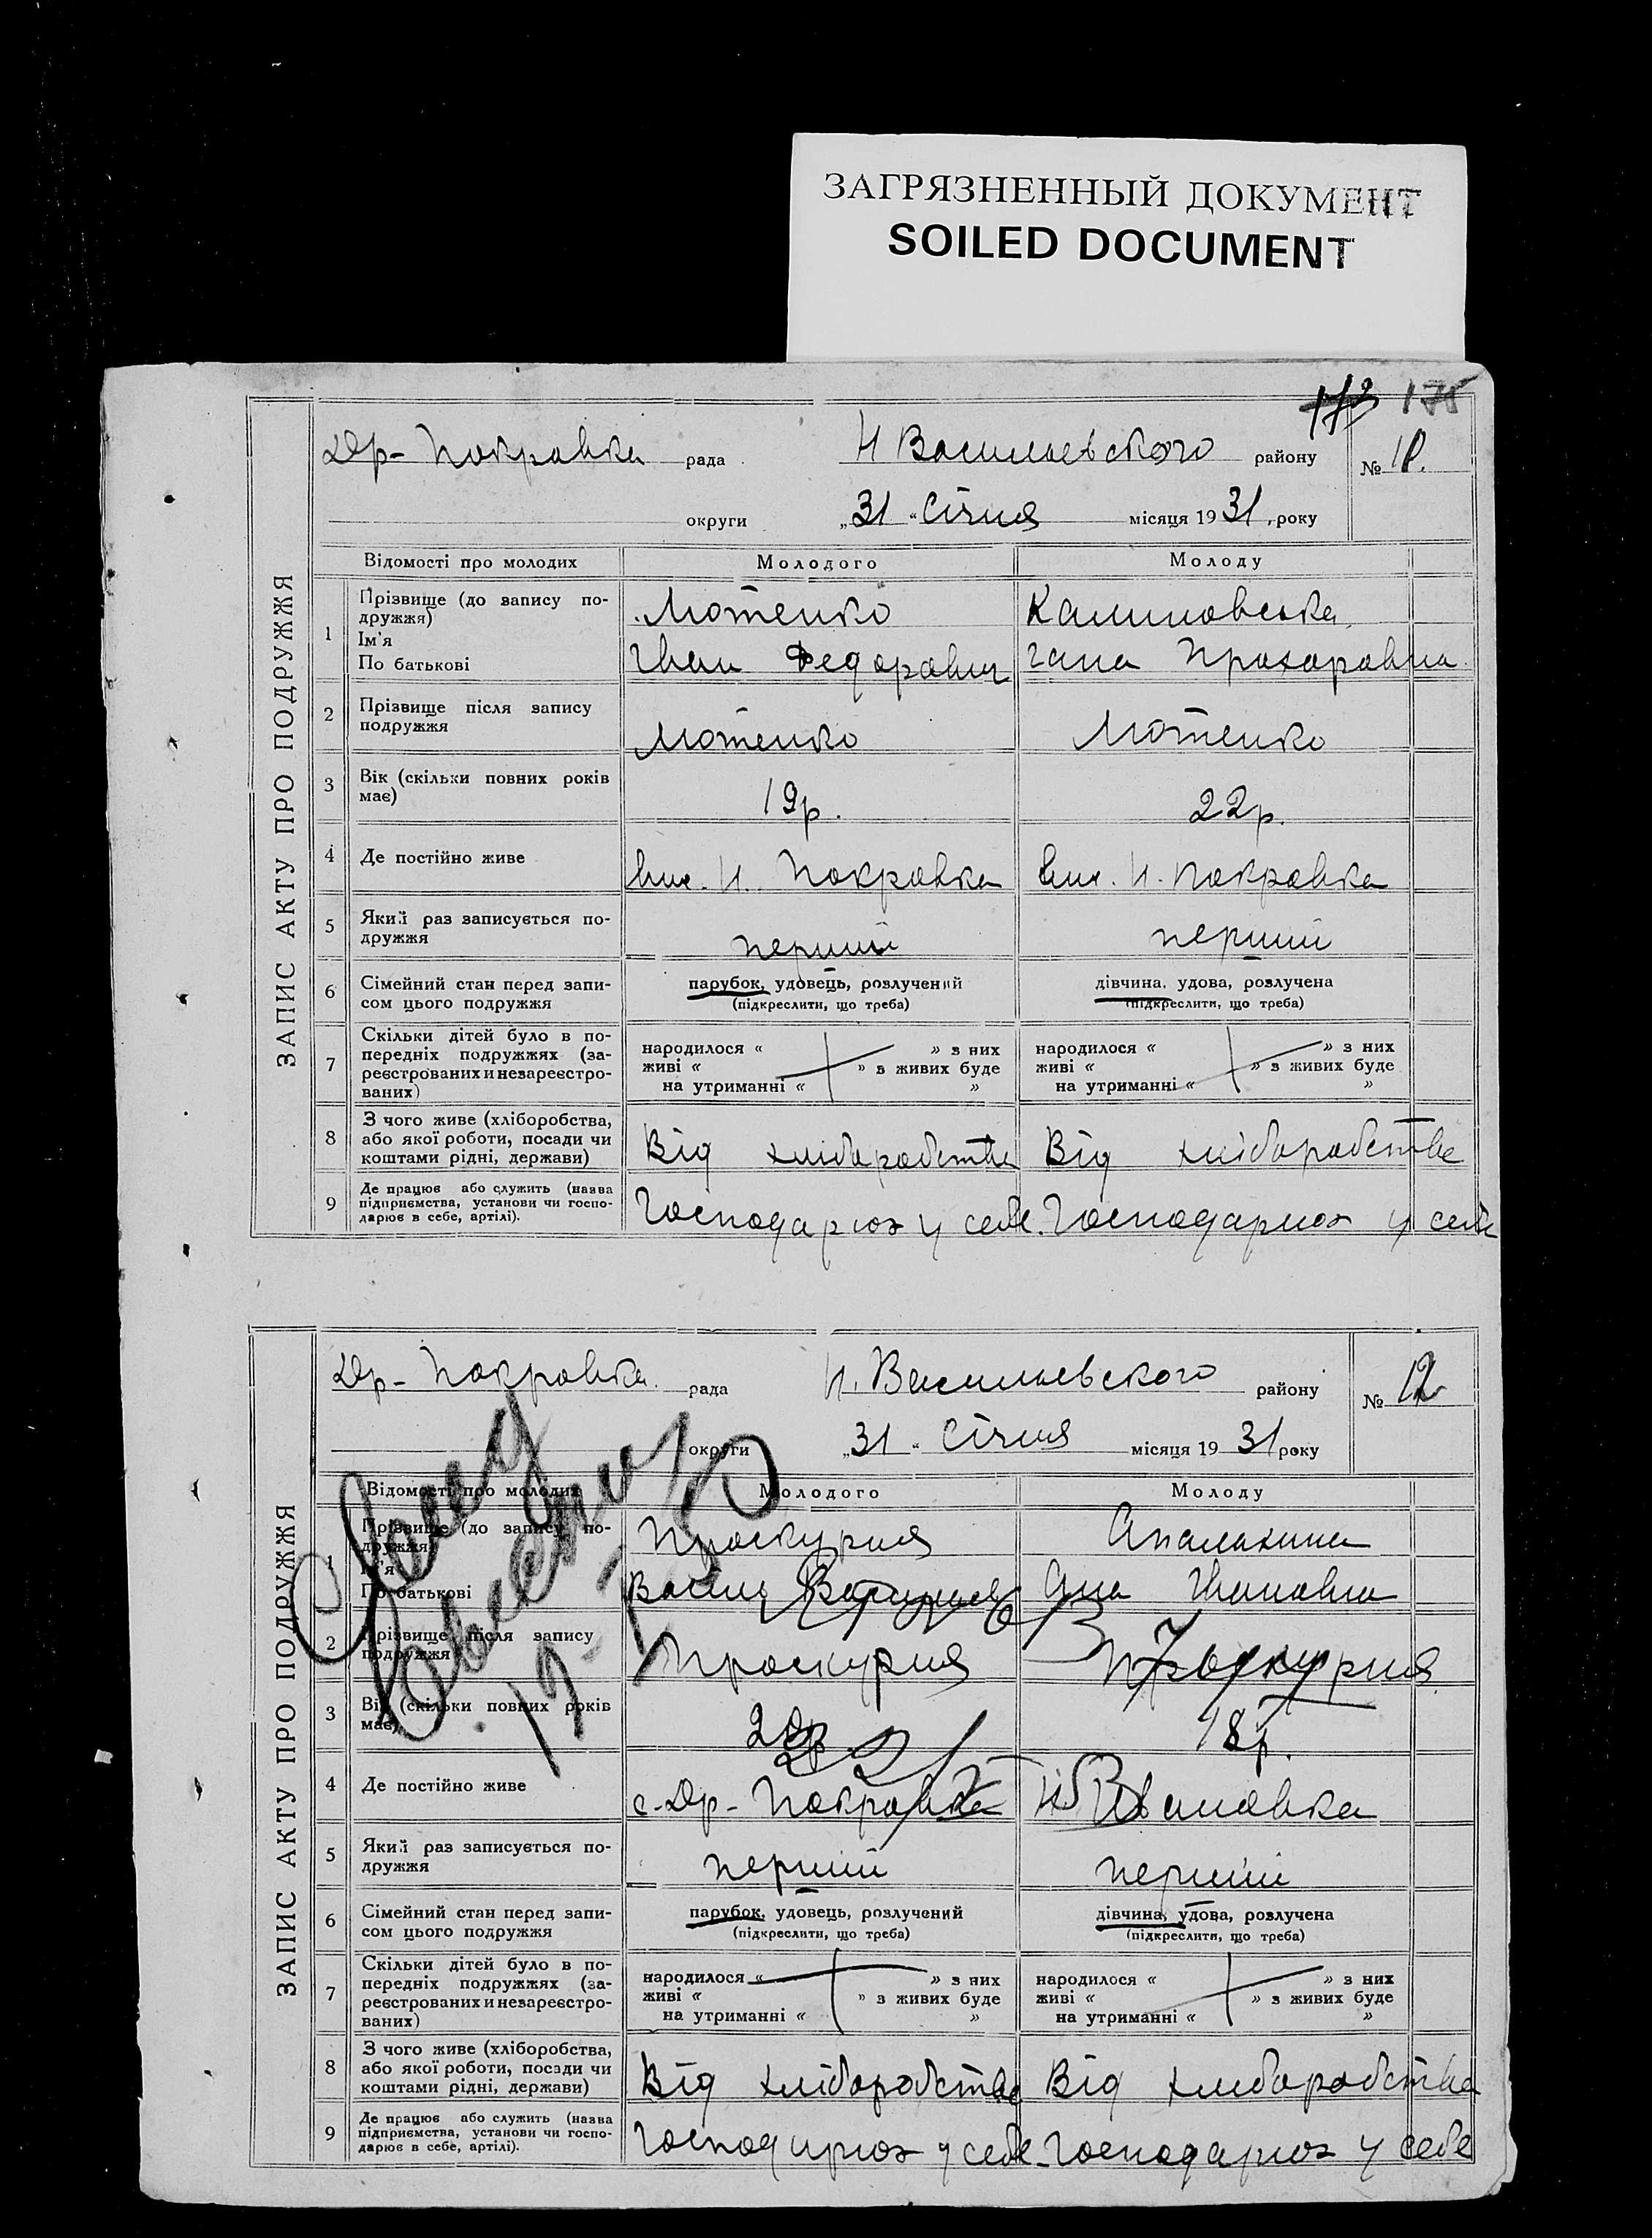 ЗАГРЯЗНЕННЫЙ ДОКУМЕНТ
SOILED DOCUMENT
173 175
Др-Покравка рада Н Васильевского району № 18.
округи „31“ Січня місяця 1931, року
ЗАПИС АКТУ ПРО ПОДРУЖЖЯ
Відомості про молодих Молодого Молоду
1 Прізвище (до запису по-
дружжя)
Ім'я
По батькові
Мотенко
Іван Федоравич
Калиновська
Гана Прохоравна
2 Прізвище після запису
подружжя
Мотенко Мотенко
3 Вік (скільки повних років
має)
19р. 22р.
4 Де постійно живе
вис. Н. Покравка вис. Н. Покравка
5 Який раз записується по-
дружжя
перший перший
6 Сімейний стан перед запи-
сом цього подружжя
парубок, удовець, розлучений
(підкреслити, що треба)
дівчина, удова, розлучена
(підкреслити, що треба)
7 Скільки дітей було в по-
передніх подружжях (за-
реєстрованих и незареєстро-
ваних)
народилося « » з них
живі « » з живих буде
на утриманні « »
народилося « » з них
живі « » з живих буде
на утриманні « »
8 З чого живе (хліборобства,
або якої роботи, посади чи
коштами рідні, держави)
Від хлібаробства Від хлібаробства
9 Де працює або служить (назва
підприємства, установи чи госпо-
дарює в себе, артілі).
Господарює у себе. Господарює у себе
Др-Покровка. рада Н. Васильевского району № 12
округи „31“ Січня місяця 1931 року
ЗАПИС АКТУ ПРО ПОДРУЖЖЯ
Відомості про молодих Молодого Молоду
1 Прізвище (до запису по-
дружжя)
Ім'я
По батькові
Проскурня
Василь
Апалькина
Яна Ивановна
2 Прізвище після запису
подружжя
Проскурня Проскурня
3 Вік (скільки повних років
має)
20р 21 18р.
4 Де постійно живе
с-Др-Покравка Ивановка
5 Який раз записується по-
дружжя
перший перший
6 Сімейний стан перед запи-
сом цього подружжя
парубок, удовець, розлучений
(підкреслити, що треба)
дівчина, удова, розлучена
(підкреслити, що треба)
7 Скільки дітей було в по-
передніх подружжях (за-
реєстрованих и незареєстро-
ваних)
народилося « » з них
живі « » з живих буде
на утриманні « »
народилося « » з них
живі « » з живих буде
на утриманні « »
8 З чого живе (хліборобства,
або якої роботи, посади чи
коштами рідні, держави)
Від хлібаробства Від хлібаробства
9 Де працює або служить (назва
підприємства, установи чи госпо-
дарює в себе, артілі).
Господарює у себе. Господарює у себе